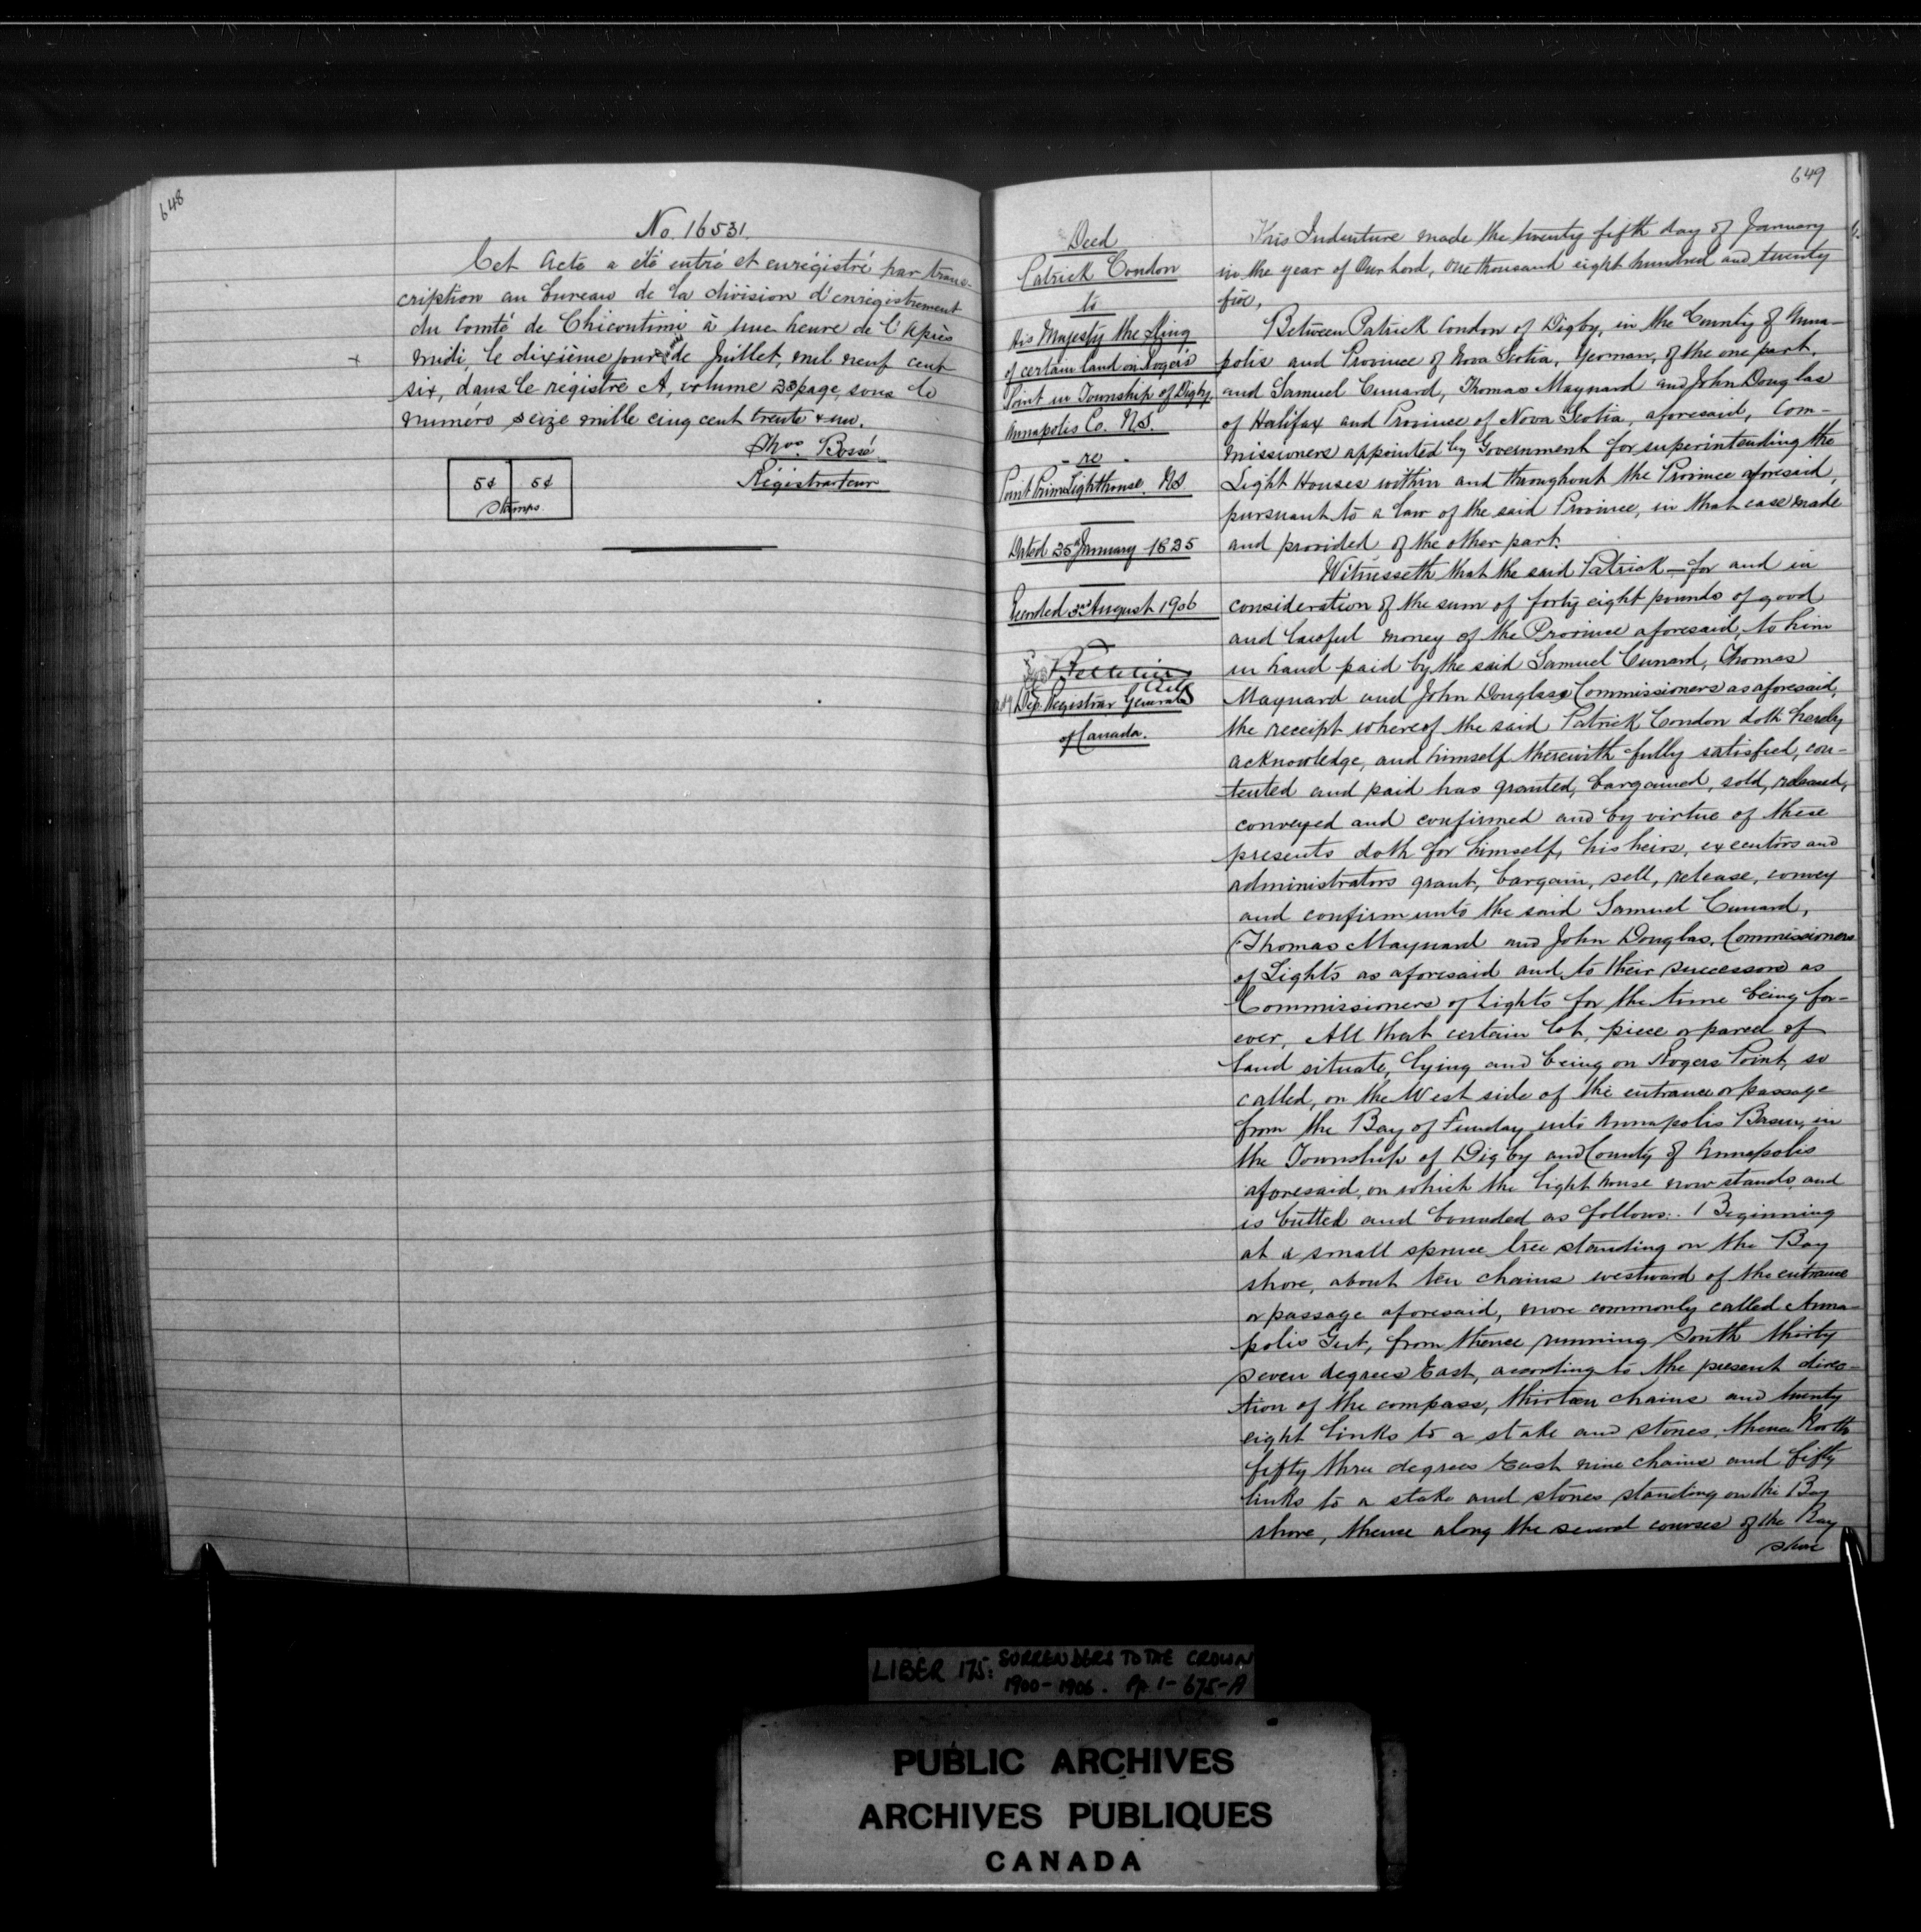 648
No. 16531.
Cet Acte a été entré et enrégistré par trans-
cription au bureau de la division d'enrégistrement
du Comté de Chicoutimi à une heure de l'après
midi, le dixième jour de Juillet, mil neuf cent
six, dans le régistre A, volume 33 page, sous le
numéro seize mille cinq cent trente & un.
Thos. Bossé
Régistrateur
5¢ 5¢
Stamps.
649
Deed
Patrick Condon
to
His Majesty the King
of certain land on Roger's
Point in Township of Digby,
Annapolis Co. N.S.
- re -
Point Prim Lighthouse. N.S.
Dated 25th January 1825
Recorded 3rd August 1906
Dep. Registrar General
of Canada.
This Indenture made the twenty fifth day of January
in the year of Our Lord, one thousand eight hundred and twenty
five,
Between Patrick Condon of Digby, in the County of Anna-
polis and Province of Nova Scotia, Yeoman, of the one part,
and Samuel Cunard, Thomas Maynard and John Douglas
of Halifax and Province of Nova Scotia, aforesaid, Com-
missioners appointed by Government for superintending the
Light Houses within and throughout the Province aforesaid,
pursuant to a law of the said Province, in that case made
and provided of the other part.
Witnesseth that the said Patrick — for and in
consideration of the sum of forty eight pounds of good
and lawful money of the Province aforesaid, to him
in hand paid by the said Samuel Cunard, Thomas
Maynard and John Douglass Commissioners as aforesaid,
the receipt whereof the said Patrick Condon doth hereby
acknowledge, and himself therewith fully satisfied, con-
tented and paid has granted, bargained, sold, released,
conveyed and confirmed and by virtue of these
presents doth for himself, his heirs, executors and
administrators grant, bargain, sell, release, convey
and confirm unto the said Samuel Cunard,
Thomas Maynard and John Douglas, Commissioners
of Lights as aforesaid and to their successors as
Commissioners of Lights for the time being for-
ever, All that certain lot, piece or parcel of
land situate, lying and being on Rogers Point, so
called, on the West side of the entrance or passage
from the Bay of Funday into Annapolis Basin, in
the Township of Digby and County of Annapolis
aforesaid, on which the light house now stands, and
is butted and bounded as follows:. Beginning
at a small spruce tree standing on the Bay
shore, about ten chains westward of the entrance
or passage aforesaid, more commonly called Anna-
polis Gut, from thence running South thirty
seven degrees East, according to the present direc-
tion of the compass, thirteen chains and twenty
eight links to a stake and stones, thence North
fifty three degrees East nine chains and fifty
links to a stake and stones standing on the Bay
shore, thence along the several courses of the Bay
shore
LIBER 175: SURRENDERS TO THE CROWN
1900-1906. Pp. 1-675-A
PUBLIC ARCHIVES
ARCHIVES PUBLIQUES
CANADA